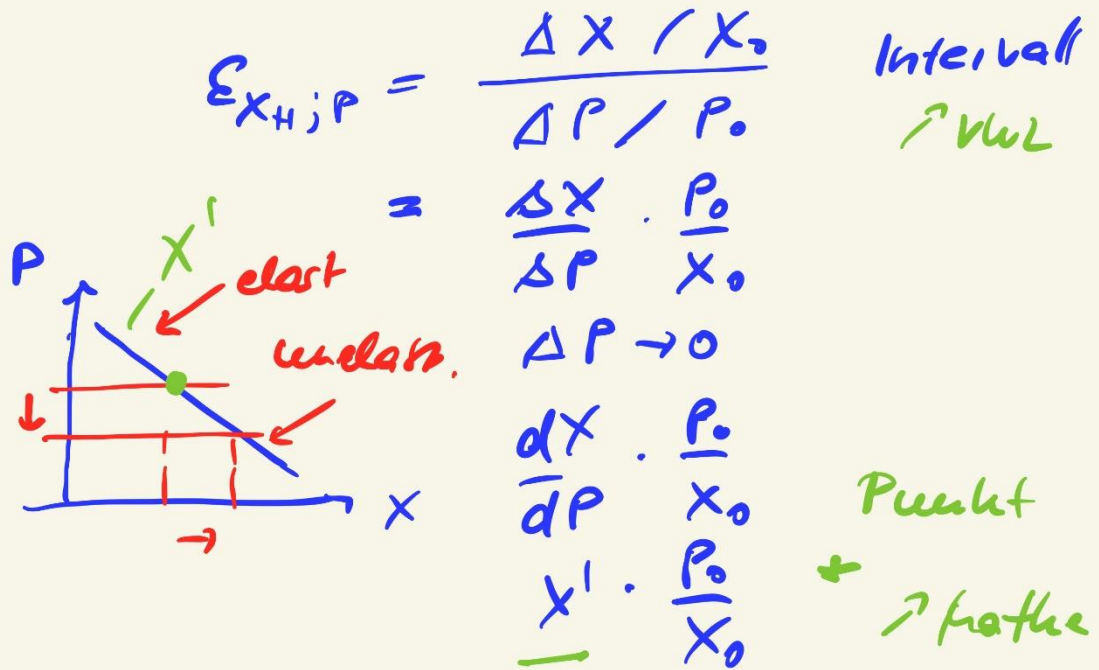 ε_{X_H; P} = (ΔX / X₀) / (ΔP / P₀)
Intervall
↗ VWL
= ΔX/ΔP · P₀/X₀
ΔP → 0
dX/dP · P₀/X₀
Punkt
X' · P₀/X₀
↗ Mathe
P
X'
elast
unelast.
X
→